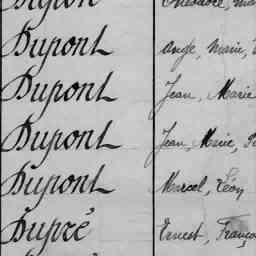 Dupont Théodore, Ma
Dupont Ange, Marie,
Dupont Jean, Marie
Dupont Jean, Marie,
Dupont Marcel, Léon
Dupré Ernest, Franço